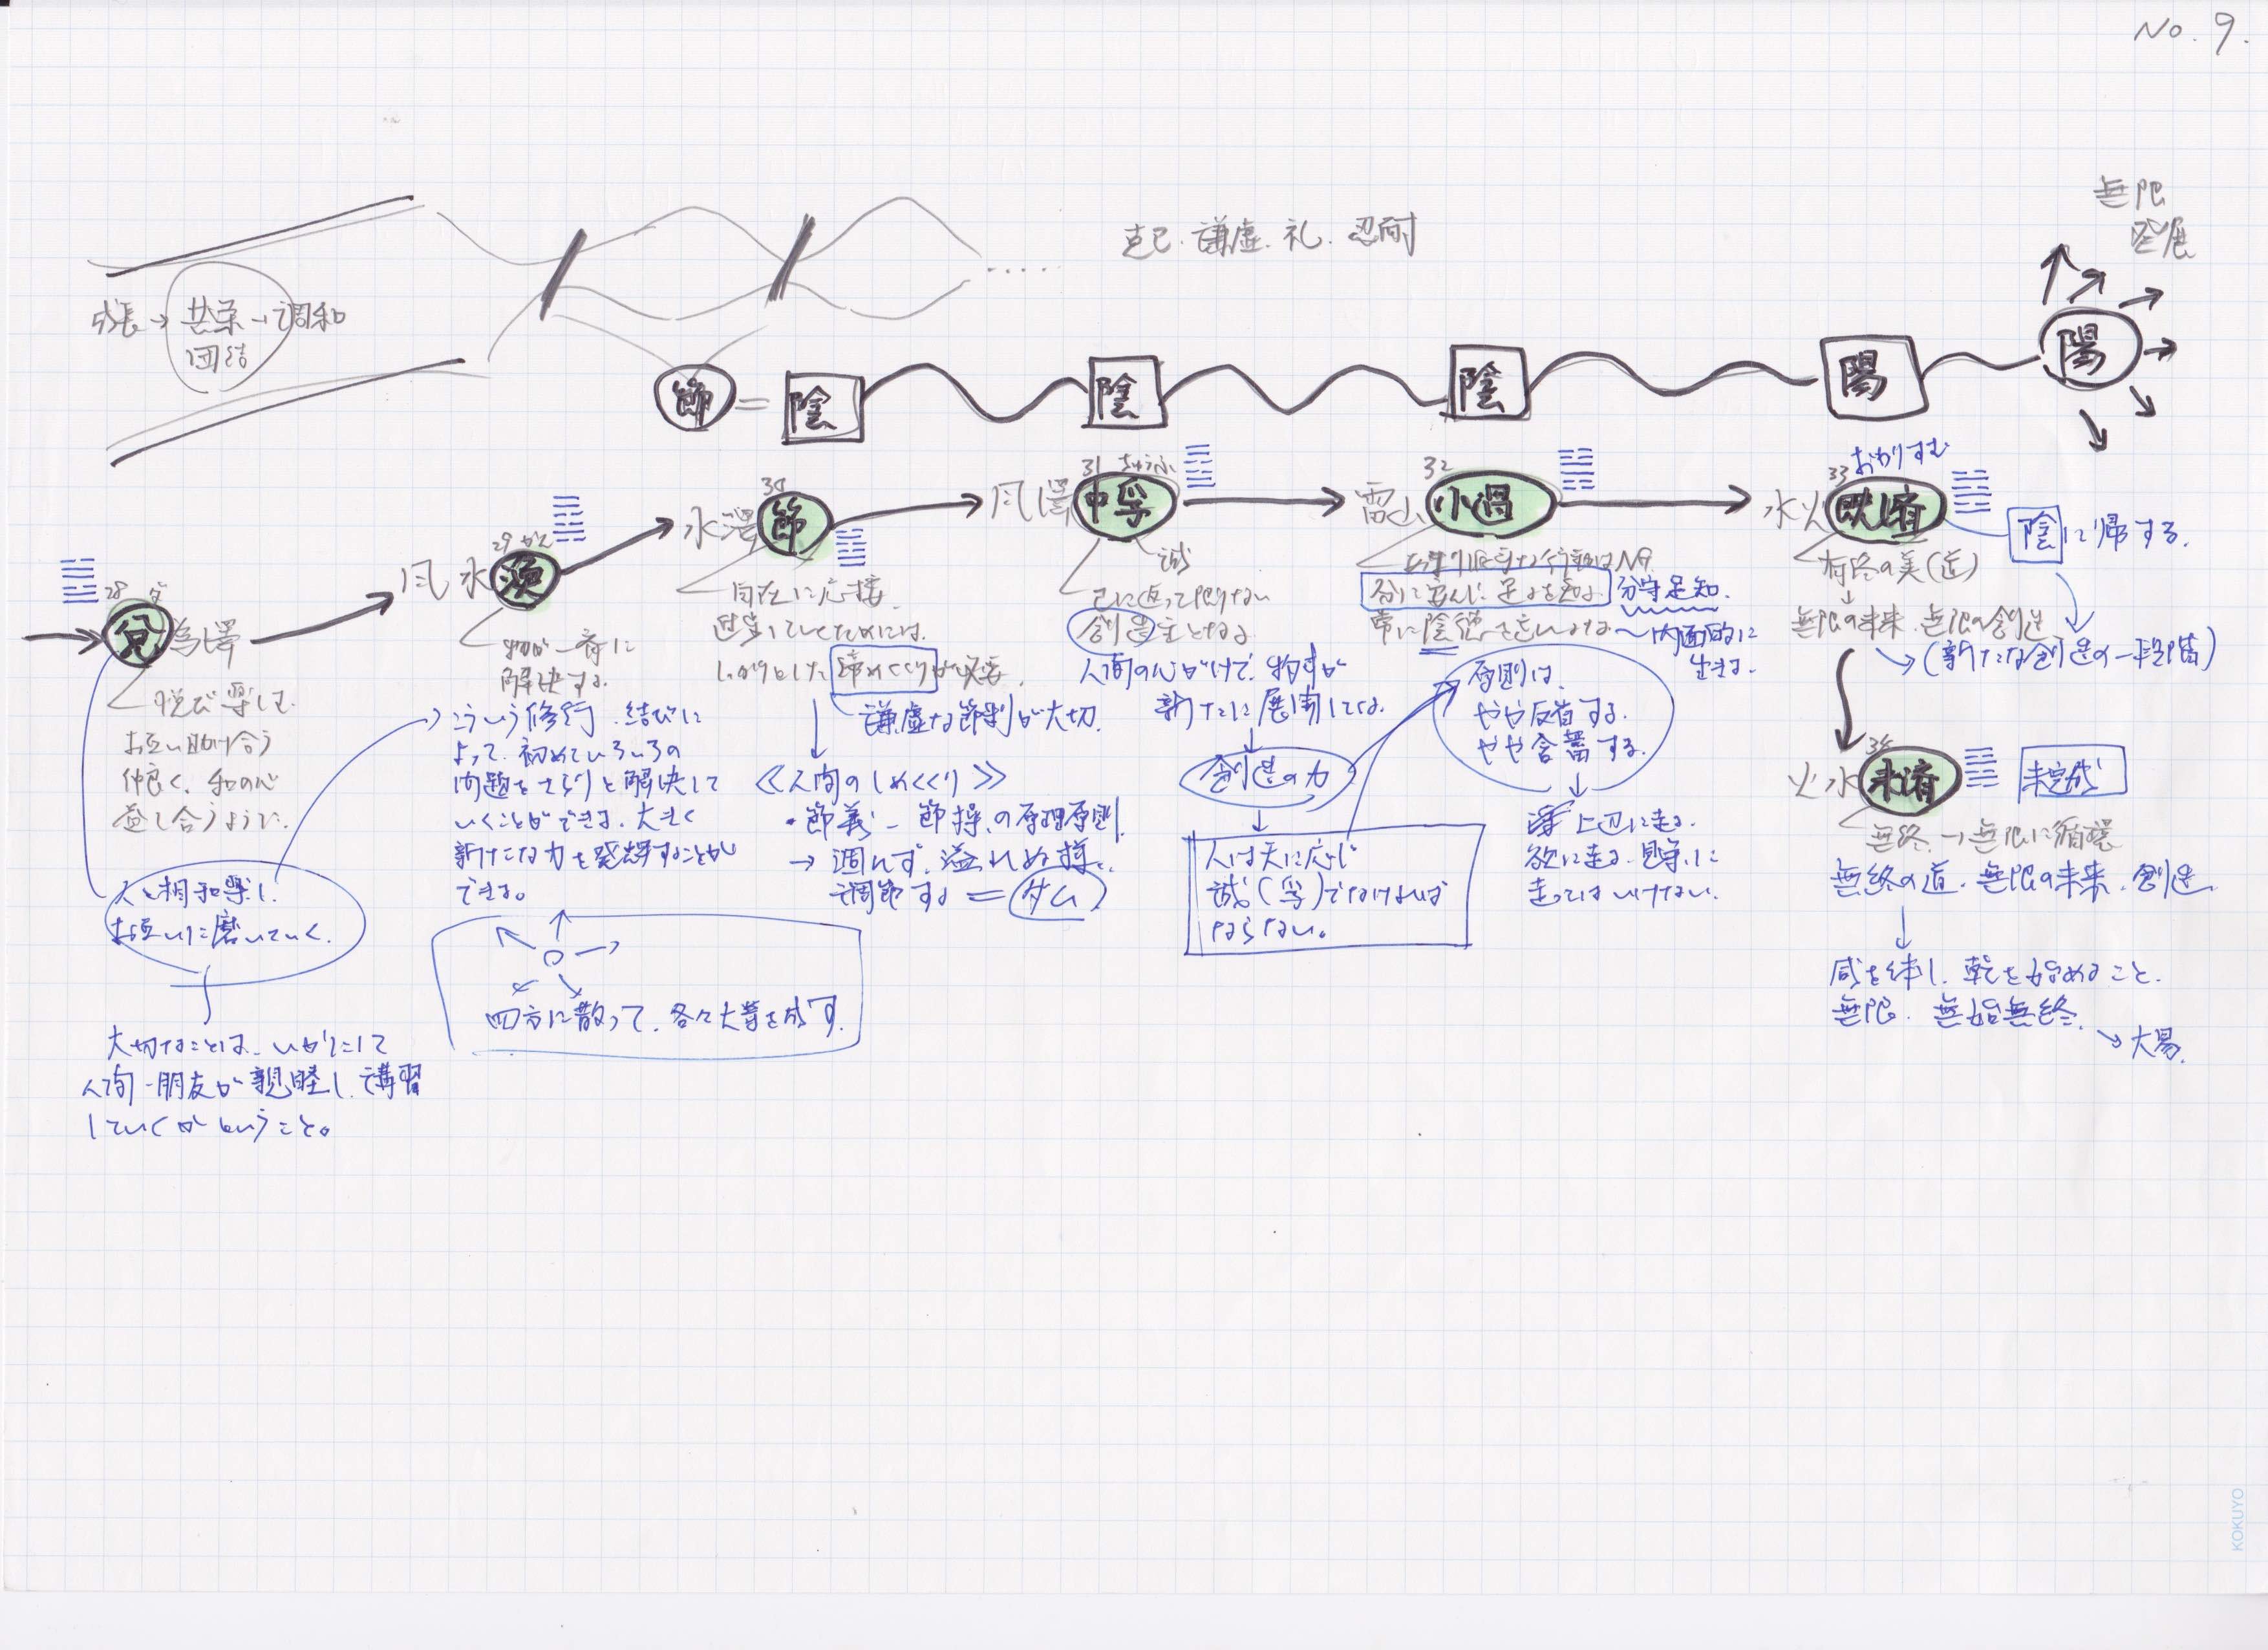 No. 9.
無限
発展
克己. 謙虚. 礼. 忍耐
成長→共栄→調和
団結
節 = 陰
陰
陰
陽
陽
28 だ
兌為澤
悦び楽しむ
お互い助け合う
仲良く、和の心
益し合うように.
人と相和楽し
お互いに磨いていく.
大切なことは、いかにして
人間-朋友が親睦し、講習
していくかということ。
29 かん
風水渙
物が一斉に
解決する.
→こういう修行、結びに
よって、初めていろいろの
問題をさらりと解決して
いくことができる、大きく
新たな力を発揮することが
できる。
四方に散って、各々大業を成す.
30
水澤節
自在に応接
していくためには.
しっかりとした締めくくりが必要.
謙虚な節制が大切.
≪人間のしめくくり≫
・節義-節操、の原理原則.
→涸れず、溢れぬ様.
調節する=ダム
31 ちゅうふ
風澤中孚
誠
己に返って限りない
創造主となる
人間の心がけで、物事が
新たに展開してくる.
創造の力
人は天に応じ
誠(孚)でなければ
ならない。
32
雷山小過
分に安んじ、足るを知る. 分守足知.
常に陰徳を忘れるな〜内面的に
生きる.
原則は、
やや反省する.
やや含蓄する.
上辺に走る.
欲に走る.
走ってはいけない.
33 おわりすむ
水火既濟
陰に帰する.
有終の美(道)
無限の未来. 無限の創造
→(新たな創造の一段階)
34
火水未濟
未完成
無終→無限に循環
無終の道. 無限の未来. 創造
咸を体し、乾を始めること.
無限. 無始無終.
→大易.
KOKUYO